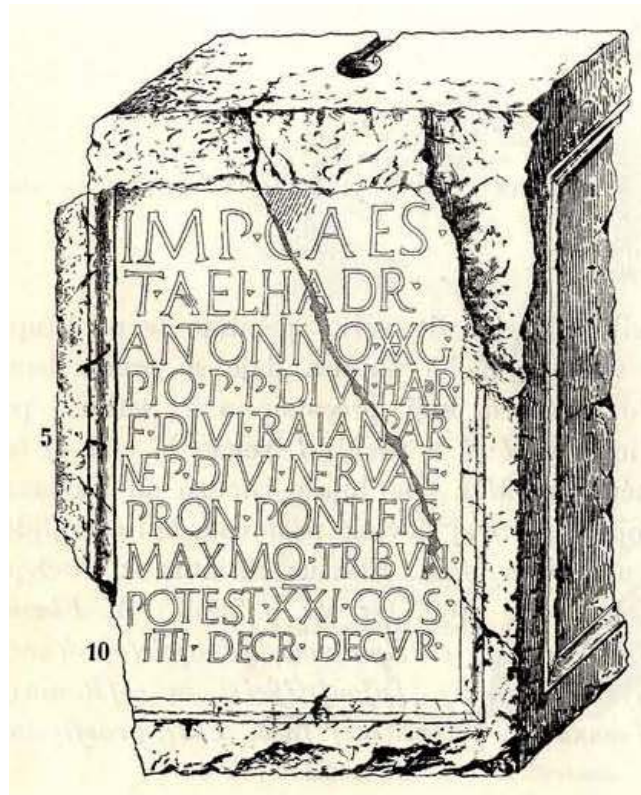 IMP·CAES·
T·AEL·HADR·
ANTONNO·AVG
PIO·P·P·DIVI·HADR·
F·DIVI·RAIANPAR
5
NEP·DIVI·NERVAE·
PRON·PONTIFIC
MAXMO·TRBVN·
POTEST·XXI·COS
10 IIII·DECR·DECVR·